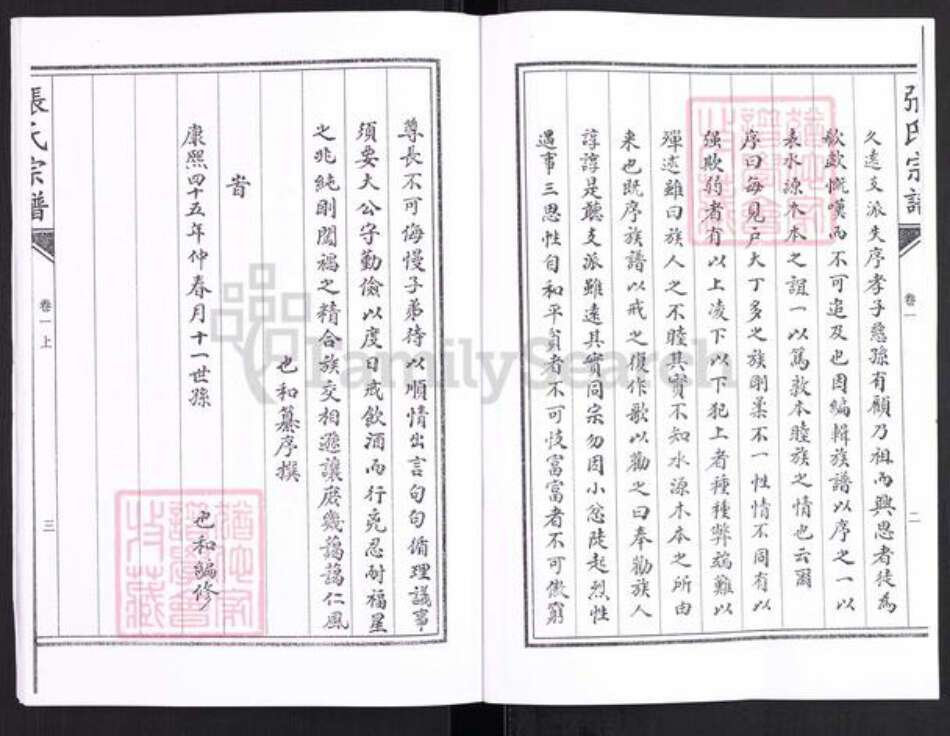 張氏宗譜
卷一
二
久遠支派失序孝子慈孫有顧乃祖而興思者徒為
欷歔慨嘆而不可追及也因編輯族譜以序之一以
表水源木本之誼一以篤教本睦族之情也云爾
序曰每見戶大丁多之族剛柔不一性情不同有以
强欺弱者有以上凌下以下犯上者種種弊端難以
殫述雖曰族人之不睦其實不知水源木本之所由
来也既序族譜以戒之復作歌以勸之曰奉勸族人
諄諄是聽支派雖遠其實同宗勿因小忿陡起烈性
遇事三思性自和平貧者不可忮富富者不可傲窮
尊長不可侮慢子弟待以順情出言句句循理議事
須要大公守勤儉以度日戒飲酒而行兇忍耐福星
之兆純剛闖禍之精合族交相遜讓庶幾藹藹仁風
也和纂序撰
旹
康熙四十五年仲春月十一世孫
也和編修
張氏宗譜
卷一上
三
FamilySearch